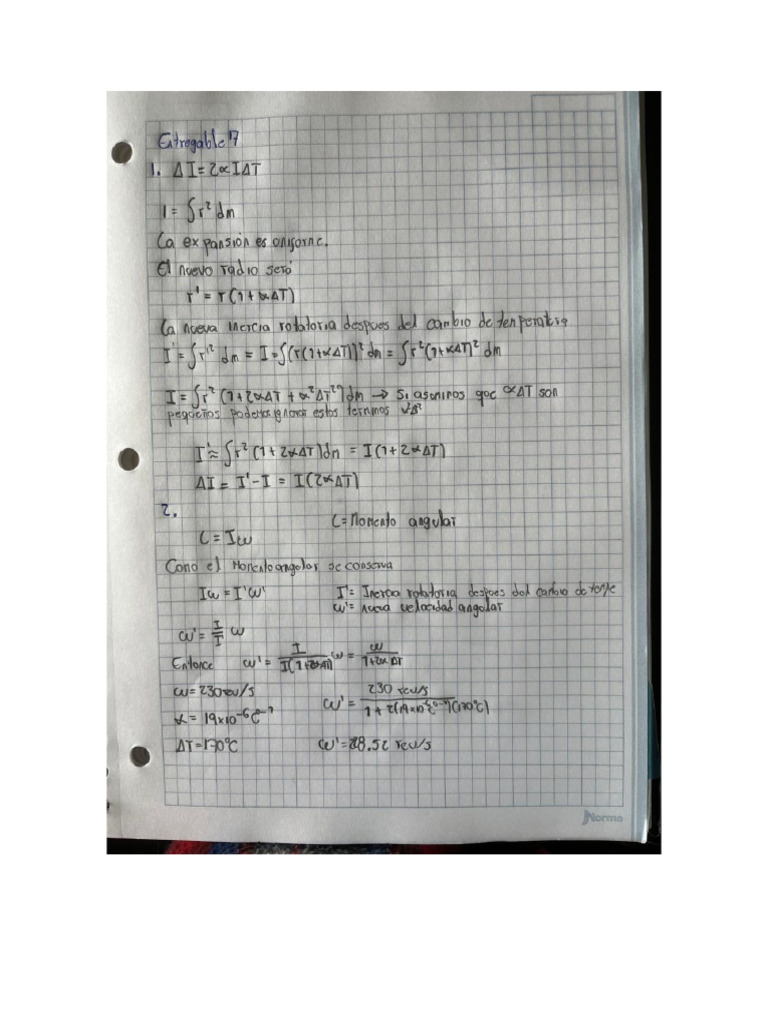 Entregable 7
1. ΔI = 2∝IΔT
I = ∫r² dm
La expansión es uniforme.
El nuevo radio será
r' = r(1+∝ΔT)
La nueva inercia rotatoria despues del cambio de temperatura
I' = ∫r'² dm = I = ∫(r(1+∝ΔT))² dm = ∫r²(1+∝ΔT)² dm
I = ∫r² (1+2∝ΔT + ∝²ΔT²)dm → Si asumimos que ∝ΔT son
pequeños podemos ignorar estos terminos
I' ≈ ∫r² (1+2∝ΔT)dm = I(1+2∝ΔT)
ΔI = I' - I = I(2∝ΔT)
2.
L = Momento angular
L = Iω
Como el Momento angular se conserva
Iω = I'ω' I' = Inercia rotatoria despues del cambio de
ω' = nueva velocidad angular
ω' = I/I' ω
Entonce ω' = I/I(1+2∝ΔT) ω = ω/1+2∝ΔT
ω = 230 rev/s ω' = 230 rev/s / 1+2(19x10⁻⁶C⁰⁻¹)(170°C)
∝ = 19x10⁻⁶C⁰⁻¹
ΔT = 170°C ω' = 228.52 rev/s
Norma